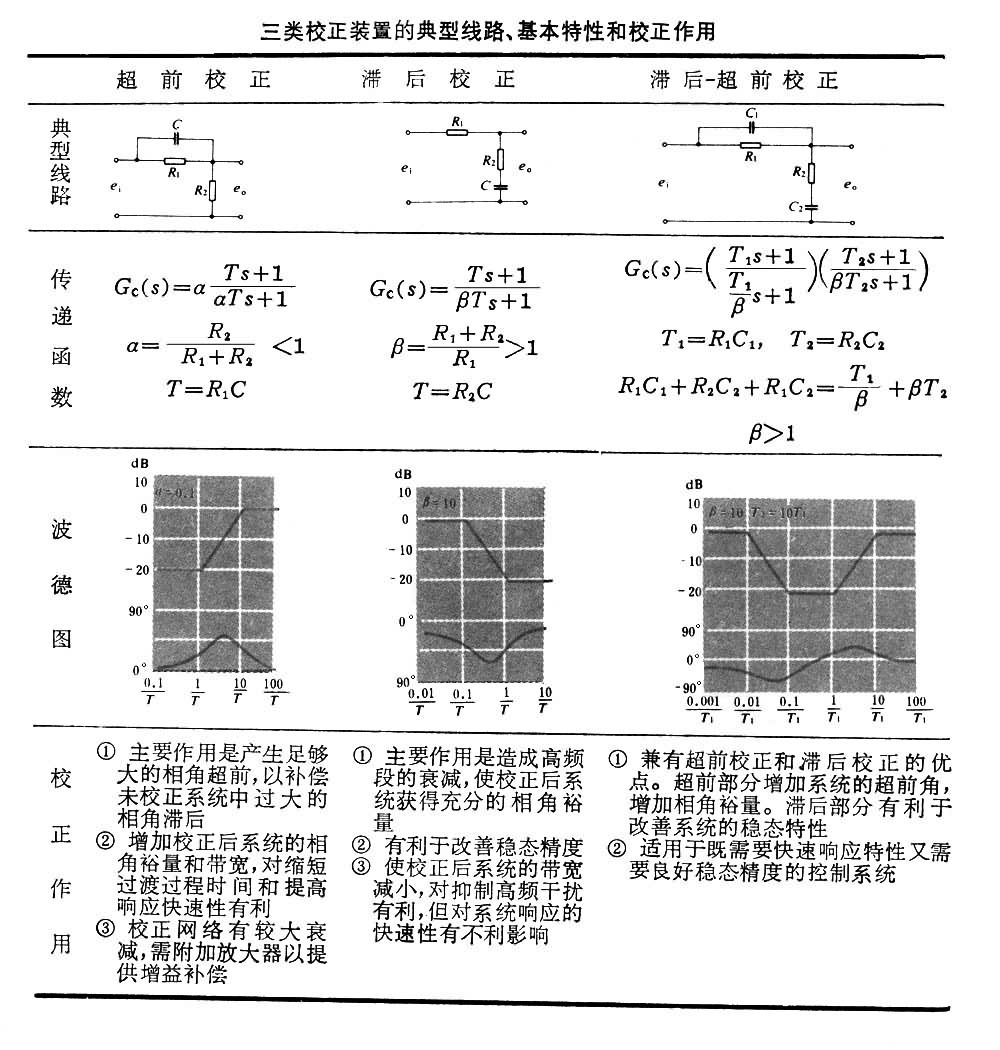 三类校正装置的典型线路、基本特性和校正作用
超前校正 滞后校正 滞后-超前校正
典型线路
C
R₁
R₂
eᵢ
eₒ
R₁
R₂
C
eᵢ
eₒ
C₁
R₁
R₂
C₂
eᵢ
eₒ
传递函数
G_C(s)=α (Ts+1)/(αTs+1)
α= R₂/(R₁+R₂) <1
T=R₁C
G_C(s)= (Ts+1)/(βTs+1)
β= (R₁+R₂)/R₁ >1
T=R₂C
G_C(s)=( (T₁s+1)/(T₁/β s+1) )( (T₂s+1)/(βT₂s+1) )
T₁=R₁C₁, T₂=R₂C₂
R₁C₁+R₂C₂+R₁C₂= T₁/β +βT₂
β>1
波德图
dB
10
α=0.1
0
-10
-20
90°
0°
0.1/T 1/T 10/T 100/T
dB
10
β=10
0
-10
-20
0°
90°
0.01/T 0.1/T 1/T 10/T
dB
10
β=10 T₁=10T₁
0
-10
-20
90°
0°
-90°
0.001/T₁ 0.01/T₁ 0.1/T₁ 1/T₁ 10/T₁ 100/T₁
校正作用
① 主要作用是产生足够
大的相角超前,以补偿
未校正系统中过大的
相角滞后
② 增加校正后系统的相
角裕量和带宽,对缩短
过渡过程时间和提高
响应快速性有利
③ 校正网络有较大衰
减,需附加放大器以提
供增益补偿
① 主要作用是造成高频
段的衰减,使校正后系
统获得充分的相角裕
量
② 有利于改善稳态精度
③ 使校正后系统的带宽
减小,对抑制高频干扰
有利,但对系统响应的
快速性有不利影响
① 兼有超前校正和滞后校正的优
点。超前部分增加系统的超前角,
增加相角裕量。滞后部分有利于
改善系统的稳态特性
② 适用于既需要快速响应特性又需
要良好稳态精度的控制系统